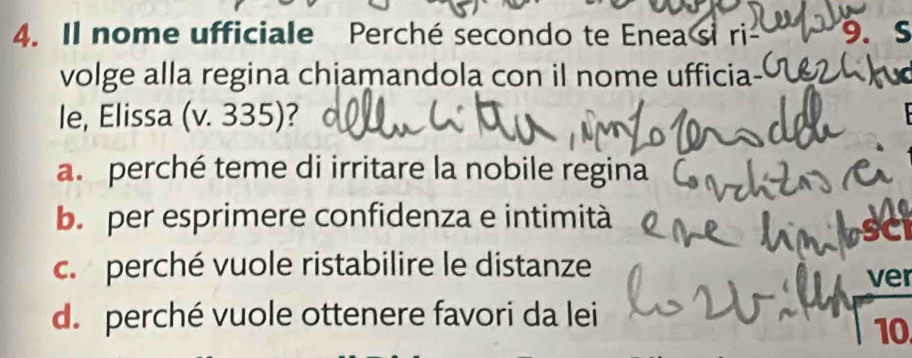 4. Il nome ufficiale Perché secondo te Enea si ri-
volge alla regina chiamandola con il nome ufficia-
le, Elissa (v. 335)?
a. perché teme di irritare la nobile regina
b. per esprimere confidenza e intimità
c. perché vuole ristabilire le distanze
d. perché vuole ottenere favori da lei
9. S
della
sci
ver
10